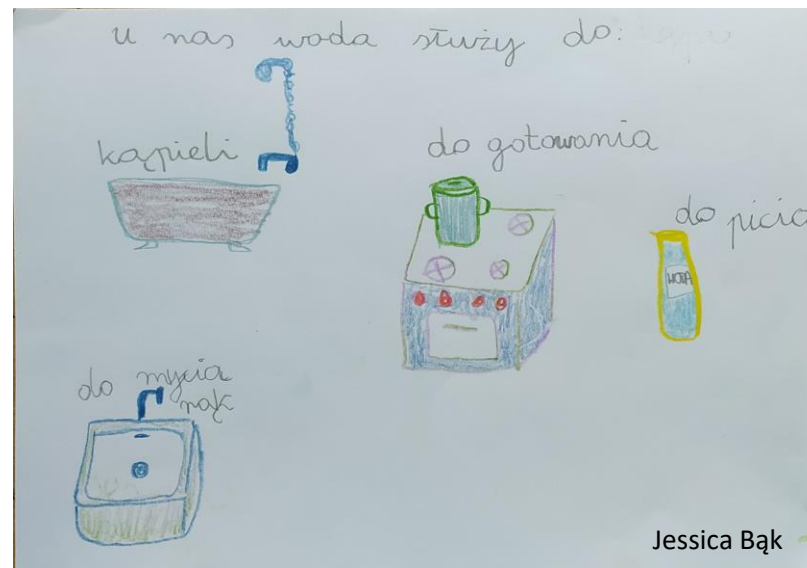 u nas woda służy do:
kąpieli
do gotowania
do picia
WODA
do mycia
rąk
Jessica Bąk